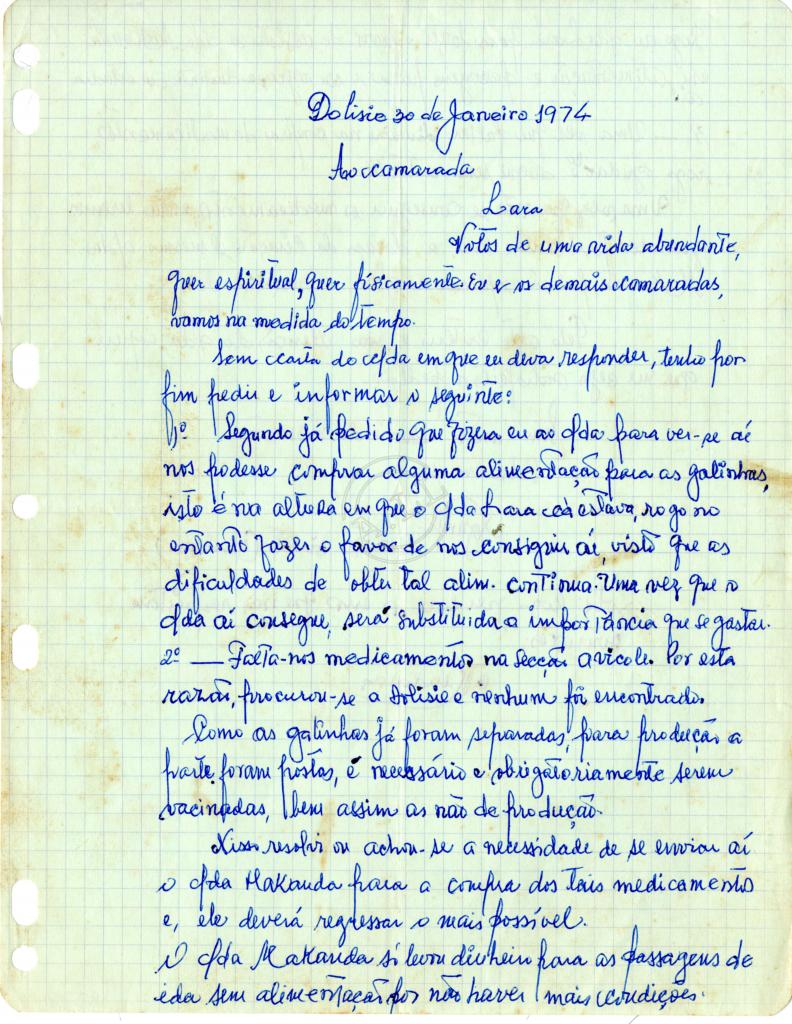 Dolisie 30 de Janeiro 1974
Ao camarada
Lara
Votos de uma vida abundante,
quer espiritual, quer físicamente. Eu e os demais camaradas,
vamos na medida do tempo.
Sem carta do cfda em que eu deva responder, tenho por
fim pedir e informar o seguinte:
1º Segundo já pedido que fizera eu ao cfda para ver-se aí
nos podesse comprar alguma alimentação para as galinhas,
isto é na altura em que o cfda Lara cá estava, rogo no
entanto fazer o favor de nos conseguir aí, visto que as
dificuldades de obter tal alim. continua. Uma vez que o
cfda aí consegue, será substituida a importância que se gastar.
2º — Falta-nos medicamentos na Secção avicole. Por esta
razão, procurou-se a Dolisie e nenhum foi encontrado.
Como as galinhas já foram separadas, para produção a
parte foram postas, é necessário e obrigatoriamente serem
vacinadas, bem assim as não de produção.
Nisso resolvi ou achou-se a necessidade de se enviar aí
o cfda Makanda para a compra dos tais medicamentos
e, ele deverá regressar o mais possível.
O cfda Makanda só levou dinheiro para as passagens de
ida sem alimentação por não haver mais condições.